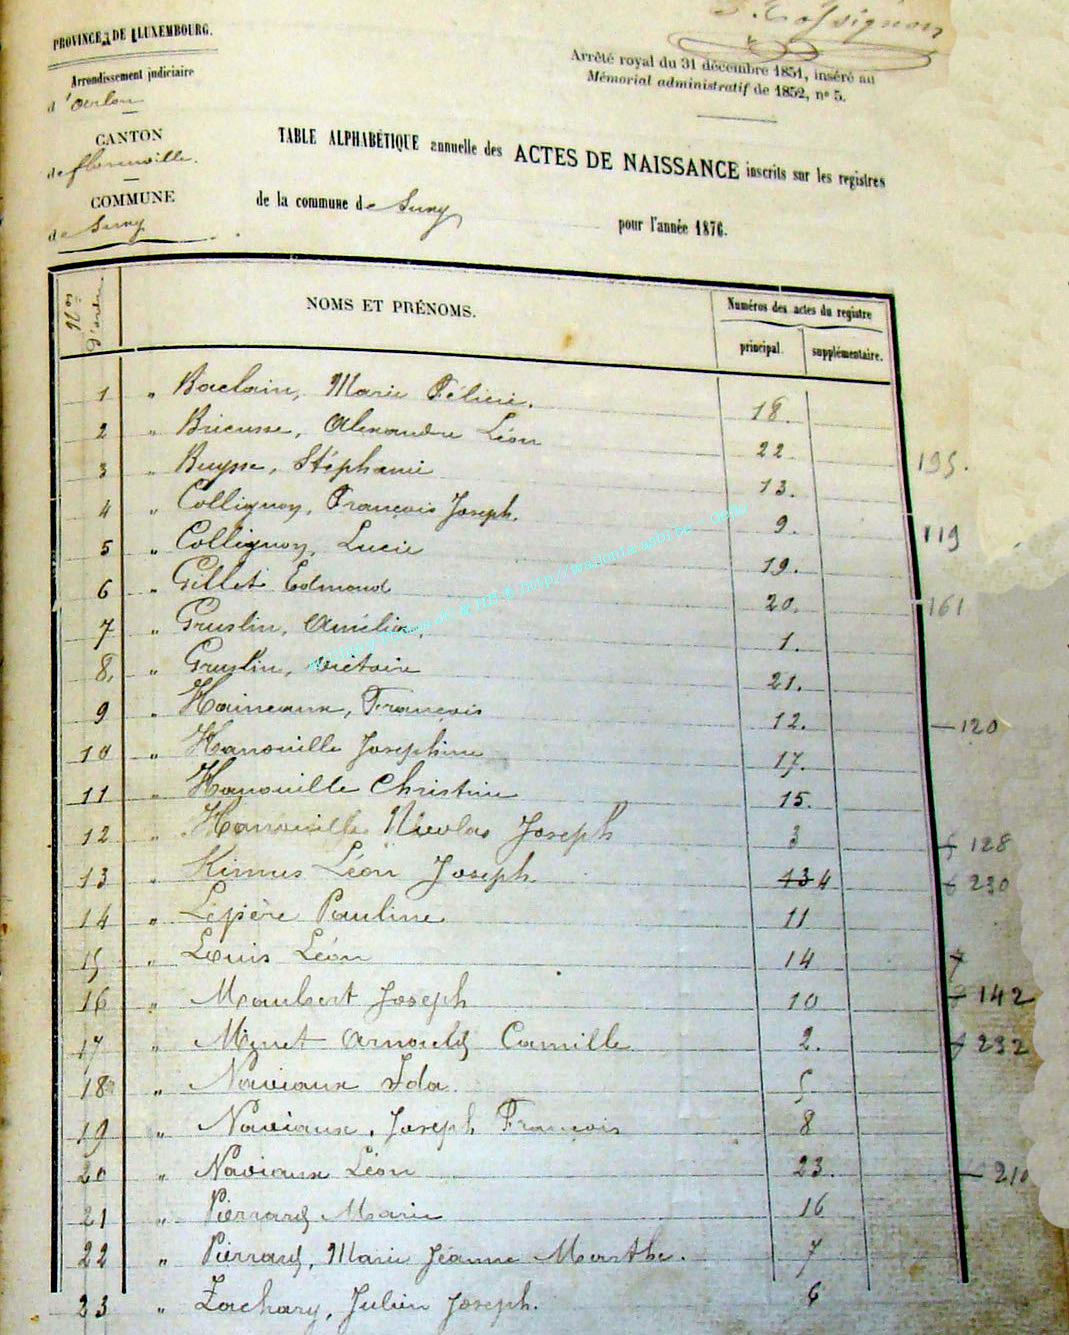 PROVINCE DE LUXEMBOURG.
Arrondissement judiciaire
d'Arlon
CANTON
de florenville.
COMMUNE
de Suny
Arrêté royal du 31 décembre 1851, inséré au
Mémorial administratif de 1852, n° 5.
TABLE ALPHABÉTIQUE annuelle des ACTES DE NAISSANCE inscrits sur les registres
de la commune de Suny pour l'année 1876.
Nos d'ordre
NOMS ET PRÉNOMS.
Numéros des actes du registre
principal. supplémentaire.
1 " Baclain, Marie Félicie. 18.
2 " Bricusse, Alexandre Léon 22.
3 " Buysse, Stéphanie 13. 195.
4 " Collignon, François Joseph. 9.
5 " Collignon, Lucie 19. 119
6 " Gillet Edmond 20. 161
7 " Gruslin, Amélie, 1.
8, " Gruslin, Victoire 21.
9 " Haineaux, François 12. 120
10 " Hanouille Joséphine 17.
11 " Hanouille Christine 15.
12 " Hanouille Nicolas Joseph 3 128
13 " Kinnes Léon Joseph 13 4 230
14 " Lepère Pauline 11
15 " Louis Léon 14
16 " Maubert Joseph 10 142
17 " Minet Arnould Camille 2. 232
18 " Naviaux Ida. 5
19 " Naviaux, Joseph François 8
20 " Naviaux Léon 23. 210
21 " Pierrard Marie 16
22 " Pierrard, Marie Jéanne Marthe. 7
23 " Zachary, Julien Joseph. 6